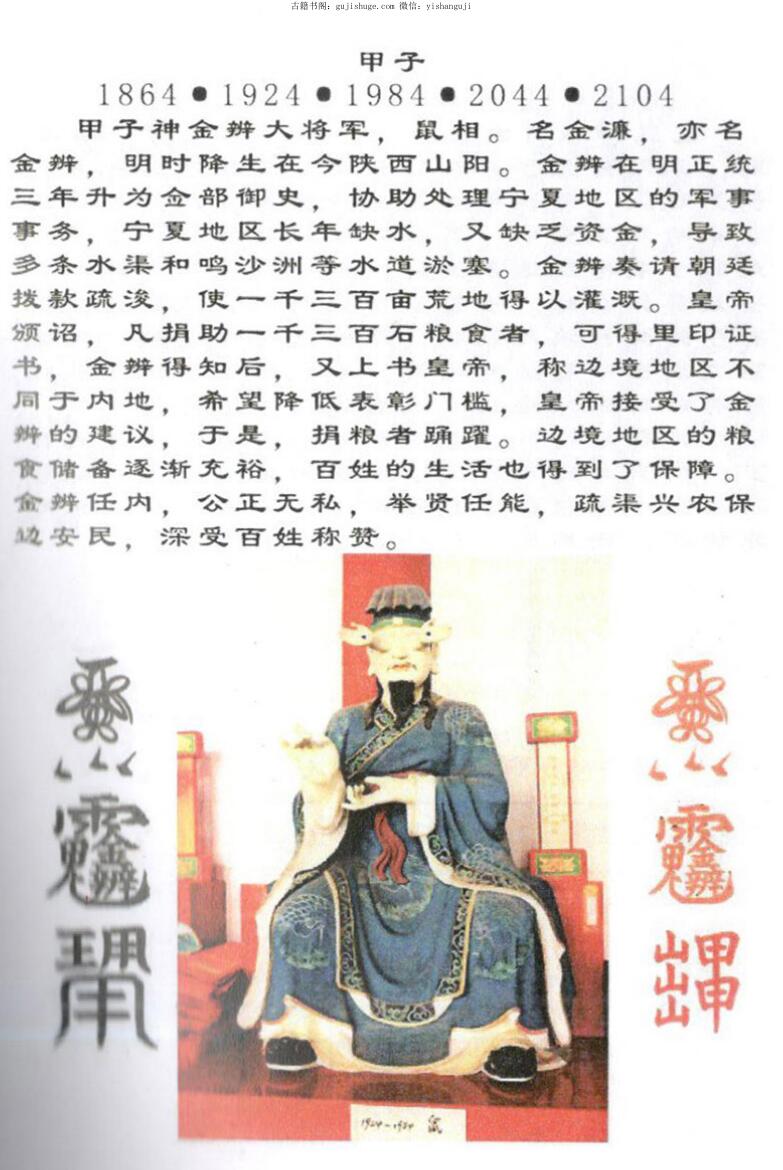 古籍书阁：gujishuge.com 微信：yishanguji
甲子
1864●1924●1984●2044●2104
甲子神金辨大将军，鼠相。名金濂，亦名
金辨，明时降生在今陕西山阳。金辨在明正统
三年升为佥部御史，协助处理宁夏地区的军事
事务，宁夏地区长年缺水，又缺乏资金，导致
多条水渠和鸣沙洲等水道淤塞。金辨奏请朝廷
拨款疏浚，使一千三百亩荒地得以灌溉。皇帝
颁诏，凡捐助一千三百石粮食者，可得里印证
书，金辨得知后，又上书皇帝，称边境地区不
同于内地，希望降低表彰门槛，皇帝接受了金
辨的建议，于是，捐粮者踊跃。边境地区的粮
食储备逐渐充裕，百姓的生活也得到了保障。
金辨任内，公正无私，举贤任能，疏渠兴农保
边安民，深受百姓称赞。
1924-1984 鼠